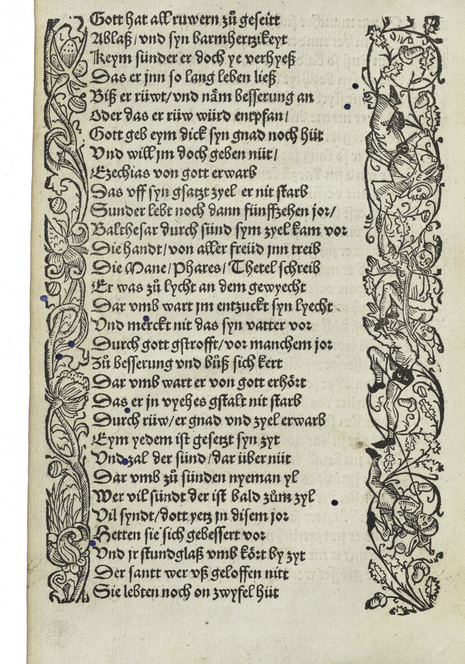 Gott hat all rüwern zů geseitt
Ablaß/ vnd syn barmhertzikeyt
Keym sünder er doch ye verhyeß
Das er jnn so lang leben ließ
Biß er rüwt/ vnd näm besserung an
Oder das er rüw würd entpfan/
Gott geb eym dick syn gnad noch hüt
Vnd will jm doch geben nüt/
Ezechias von gott erwarb
Das vff syn gsatzt zyel er nit starb
Sunder lebt noch dann fünffzehen jor/
Balthesar durch sünd sym zyel kam vor
Die handt/ von aller freüd jnn treib
Die Mane/ Phares/ Thetel schreib
Er was zů lycht an dem gewycht
Dar vmb wart jm entzuckt syn lyecht
Vnd merckt nit das syn vatter vor
Durch gott gstrofft/ vor manchem jor
Zů besserung vnd bůß sich kert
Dar vmb wart er von gott erhört
Das er jn vyehes gstalt nit starb
Durch rüw/ er gnad vnd zyel erwarb
Eym yedem ist gesetzt syn zyt
Vnd zal der sünd/ dar über nüt
Dar vmb zů sünden nyeman yl
Wer vil sündt der ist bald zům zyl
Vil syndt/ dott yetz jn disem jor
Hetten sie sich gebessert vor
Vnd jr stundglaß vmb kört by zyt
Der santt wer vß geloffen nitt
Sie lebten noch on zwyfel hüt